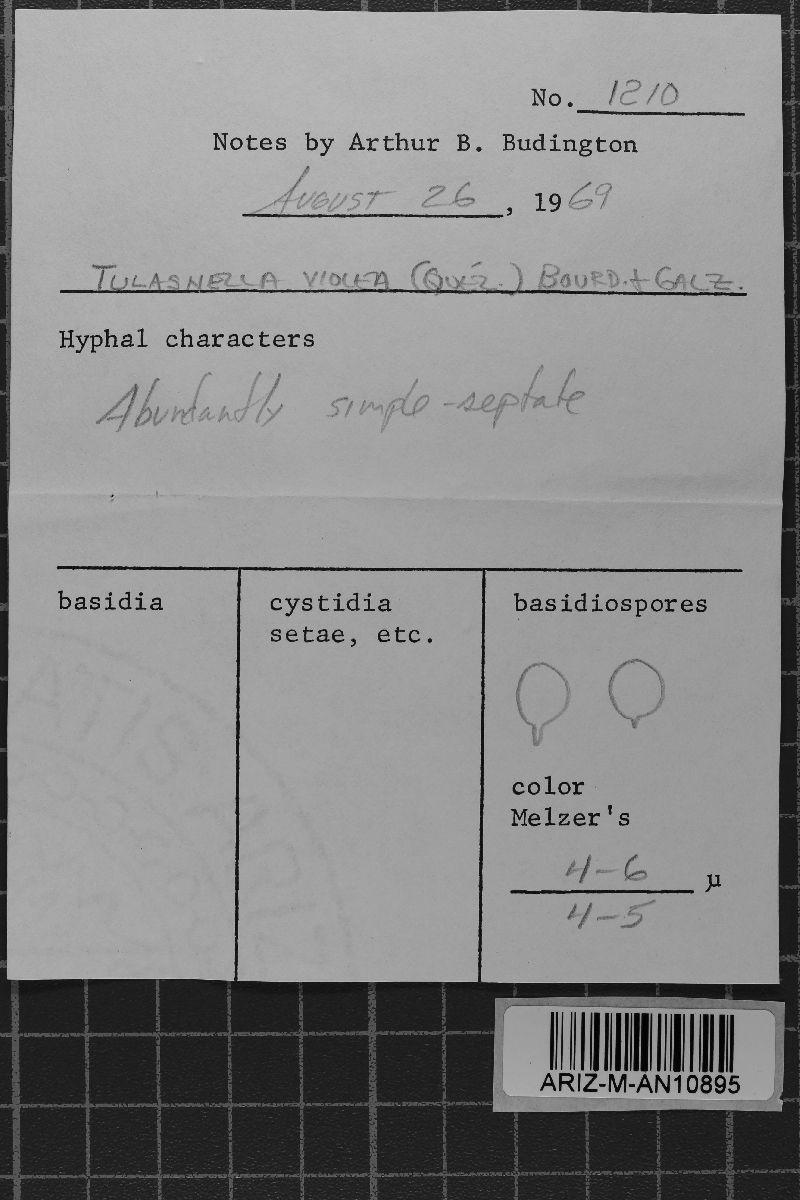 No. 1210
Notes by Arthur B. Budington
August 26, 1969
TULASNELLA VIOLEA (QUÉL.) BOURD. + GALZ.
Hyphal characters
Abundantly simple-septate
basidia
cystidia
setae, etc.
basidiospores
color
Melzer's
4-6 µ
4-5
ARIZ-M-AN10895